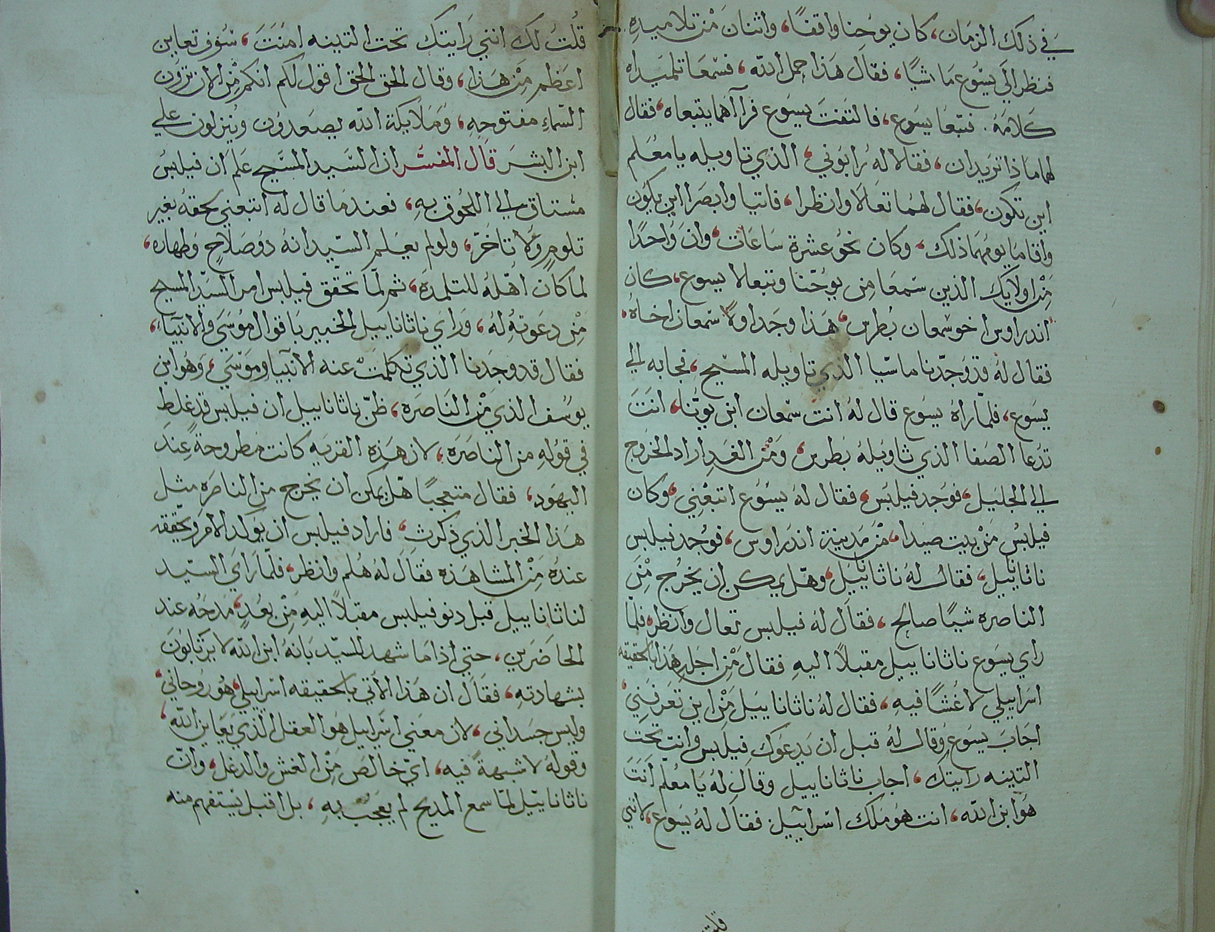 في ذلك الزمان، كان يوحنا واقفًا، واثنان من تلاميذه
فنظر الي يسوع ماشيًا، فقال هذا حمل الله، فسمعا تلميذاه
كلامه، فتبعا يسوع، فالتفت يسوع فرآهما يتبعاه، فقال
لهما ماذا تريدان، فقالا له رابوني، الذي تاويله يا معلم
اين تكون، فقال لهما تعالا وانظرا، فاتيا وابصرا اين يكون
واقاما يومهما ذلك، وكان نحو عشرة ساعات، وان واحدًا
من اوليك الذين سمعا من يوحنا وتبعا يسوع، كان
اندراوس اخو سمعان بطرس، هذا وجد اولا سمعان اخاه،
فقال له قد وجدنا ماسيا الذي تاويله المسيح، فجا به الي
يسوع، فلما راه يسوع قال له انت سمعان ابن يونا، انت
تدعا الصفا الذي تاويله بطرس، ومن الغد اراد الخروج
الي الجليل، فوجد فيلبس، فقال له يسوع اتبعني، وكان
فيلبس من بيت صيدا، من مدينة اندراوس، فوجد فيلبس
ناثانييل، فقال له ناثانييل، وهل يمكن ان يخرج من
الناصره شيًا صالح، فقال له فيلبس تعال وانظر، فلما
راي يسوع ناثاناييل مقبلاً اليه فقال من اجله هذا بالحقيقه
اسراييلي لا غشًا فيه، فقال له ناثاناييل من اين تعرفني،
اجاب يسوع وقال له قبل ان يدعوك فيلبس وانت تحت
التينه رايتك، اجاب ناثاناييل وقال له يا معلم انت
هو ابن الله، انت هو ملك اسراييل، فقال له يسوع، لانني
قلت
قلت لك انني رايتك تحت التينه امنت، سوف تعاين
اعظم من هذا، وقال الحق الحق اقول لكم انكم من الان ترون
السماء مفتوحه، وملايكة الله يصعدون وينزلون علي
ابن البشر قال المفسر ان السيد المسيح علم ان فيلبس
مشتاق الي اللحوق به، فعندما قال له اتبعني لحقه بغير
تلوم ولا تاخر، ولو لم يعلم السيد انه ذو صلاح وطهاره،
لما كان اهله للتلمذه، ثم لما تحقق فيلبس امر السيد المسيح
من دعوته له، وراي ناثاناييل الخبير باقوال موسي والانبياء،
فقال قد وجدنا الذي تكلمت عنه الانبيا وموسي، وهو ابن
يوسف الذي من الناصره، ظن ناثاناييل ان فيلبس قد غلط
في قوله من الناصره، لان هذه القريه كانت مطروحة عند
اليهود، فقال متعجبًا هل يمكن ان يخرج من الناصره مثل
هذا الخبر الذي ذكرت، فاراد فيلبس ان يوكد الامر ويحققه
عنده من المشاهده فقال له هلم وانظر، فلما راي السيد
لناثاناييل قبل دنو فيلبس مقبلاً اليه من بعد، مدحه عند
الحاضرين، حتي اذا ما شهد للسيد بانه ابن الله لا يرتابون
بشهادته، فقال ان هذا الاتي بالحقيقه اسراييلي، هو روحاني،
وليس جسداني، لان معني اسراييل هو العقل الذي يعاين الله،
وقوله لا شبهةً فيه، اي خالص من الغش والدغل، وان
ناثاناييل لما سمع المديح لم يعجب به، بل اقبل يستفهم منه